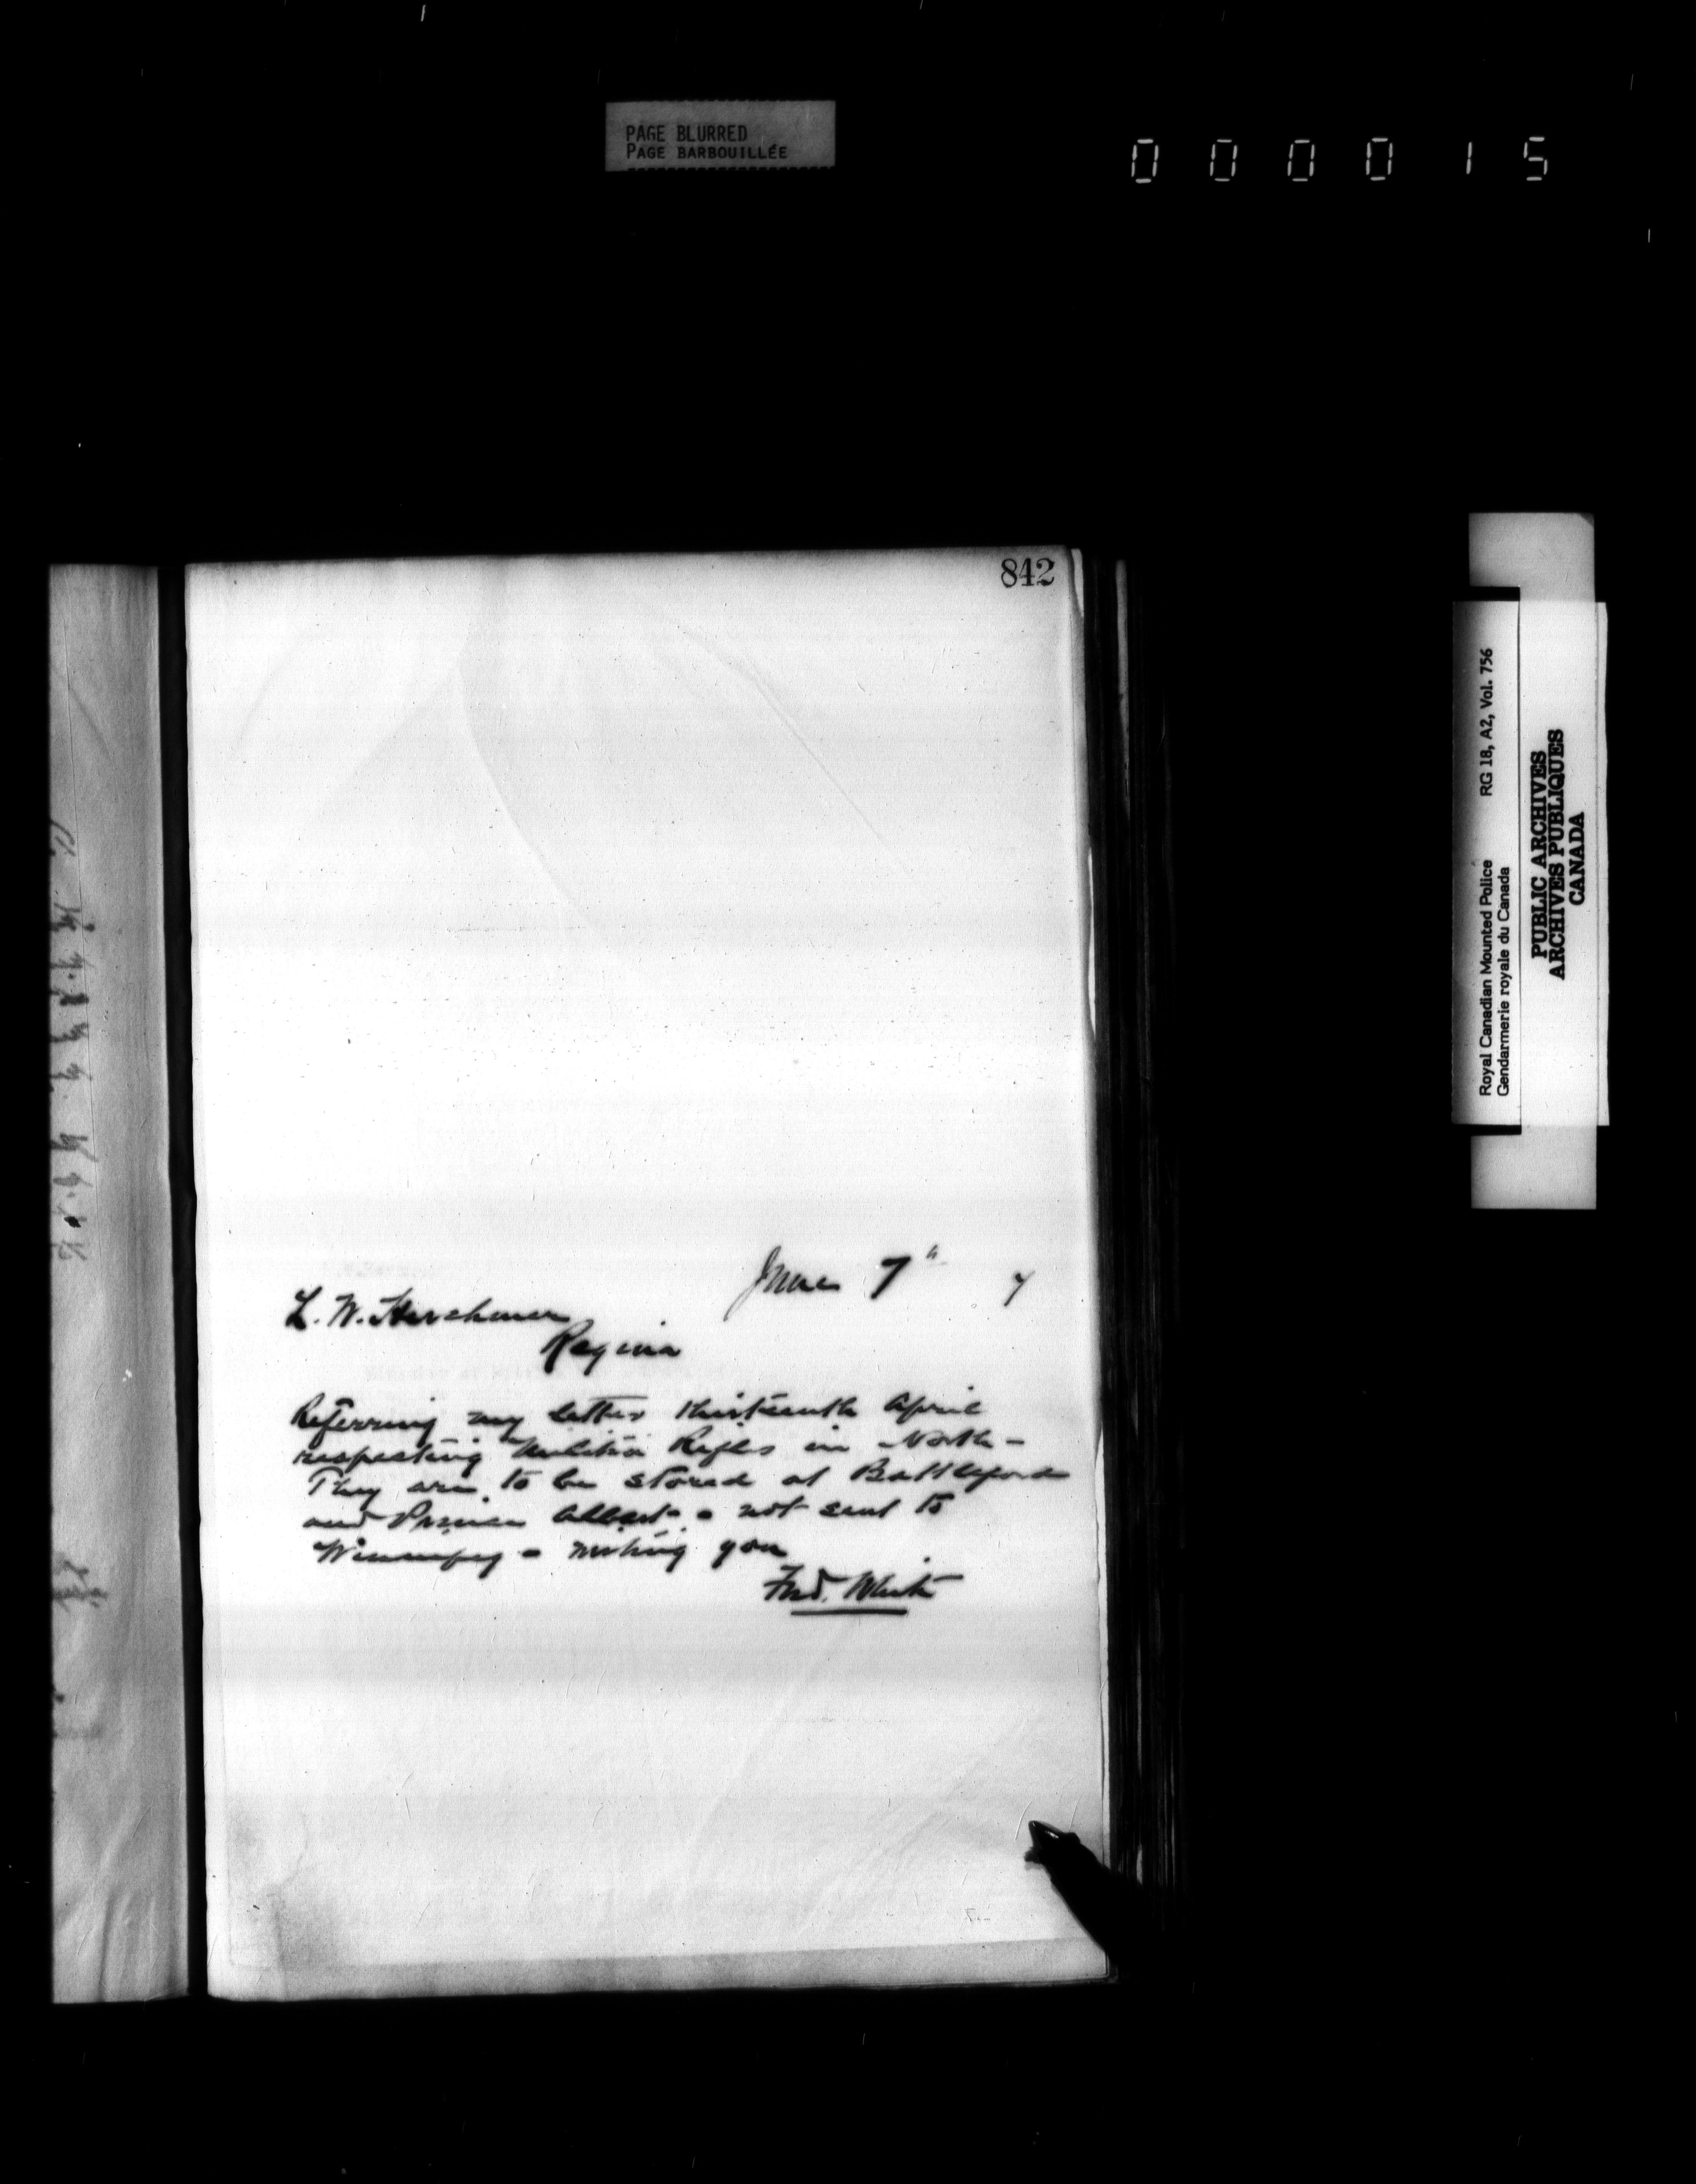 PAGE BLURRED
PAGE BARBOUILLÉE
000015
842
June 7th 7
L. W. Herchmer
Regina
Referring my letter thirteenth April
respecting Militia Rifles in North –
They are to be stored at Battleford
and Prince Albert – not sent to
Winnipeg – writing you
Fred. White
Royal Canadian Mounted Police RG 18, A2, Vol. 756
Gendarmerie royale du Canada
PUBLIC ARCHIVES
ARCHIVES PUBLIQUES
CANADA